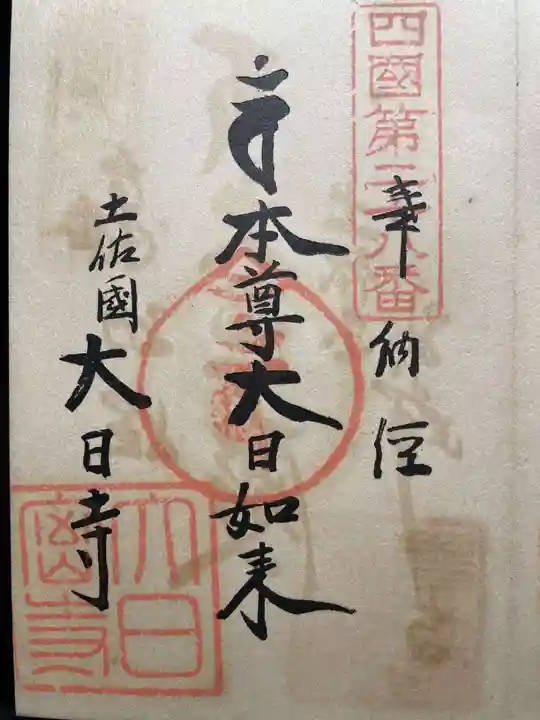 四國第二十八番
奉納経
本尊大日如来
土佐國
大日寺
大日密寺